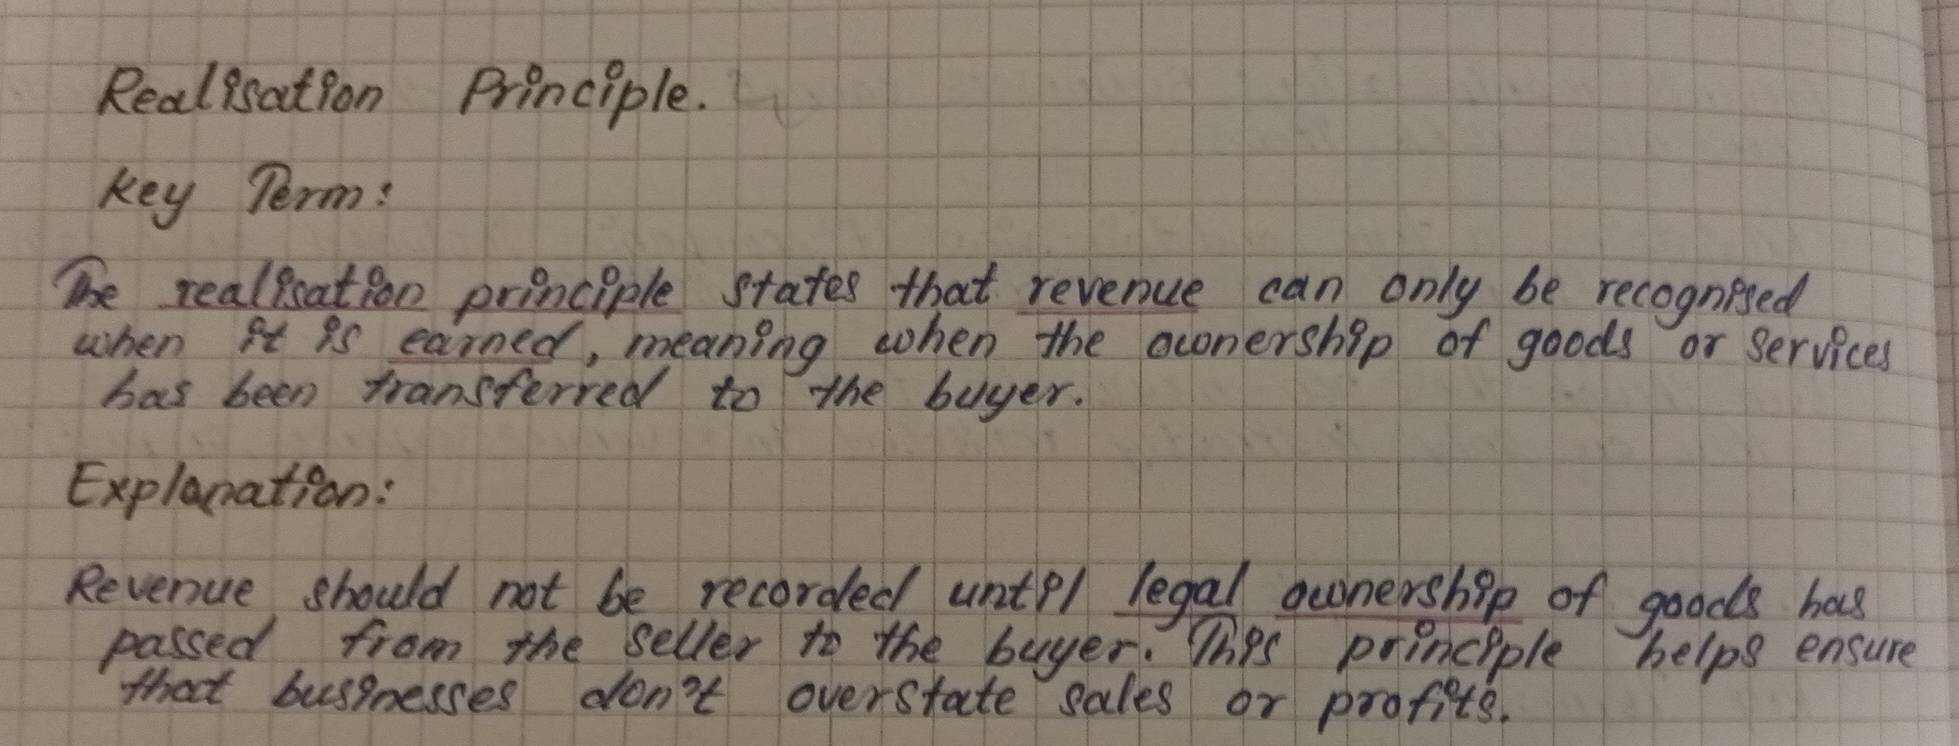 Realisation Principle.
Key Term:
The realisation principle states that revenue can only be recognised
when it is earned, meaning when the ownership of goods or services
has been transferred to the buyer.
Explanation:
Revenue should not be recorded until legal ownership of goods has
passed from the seller to the buyer. This principle helps ensure
that businesses don't overstate sales or profits.